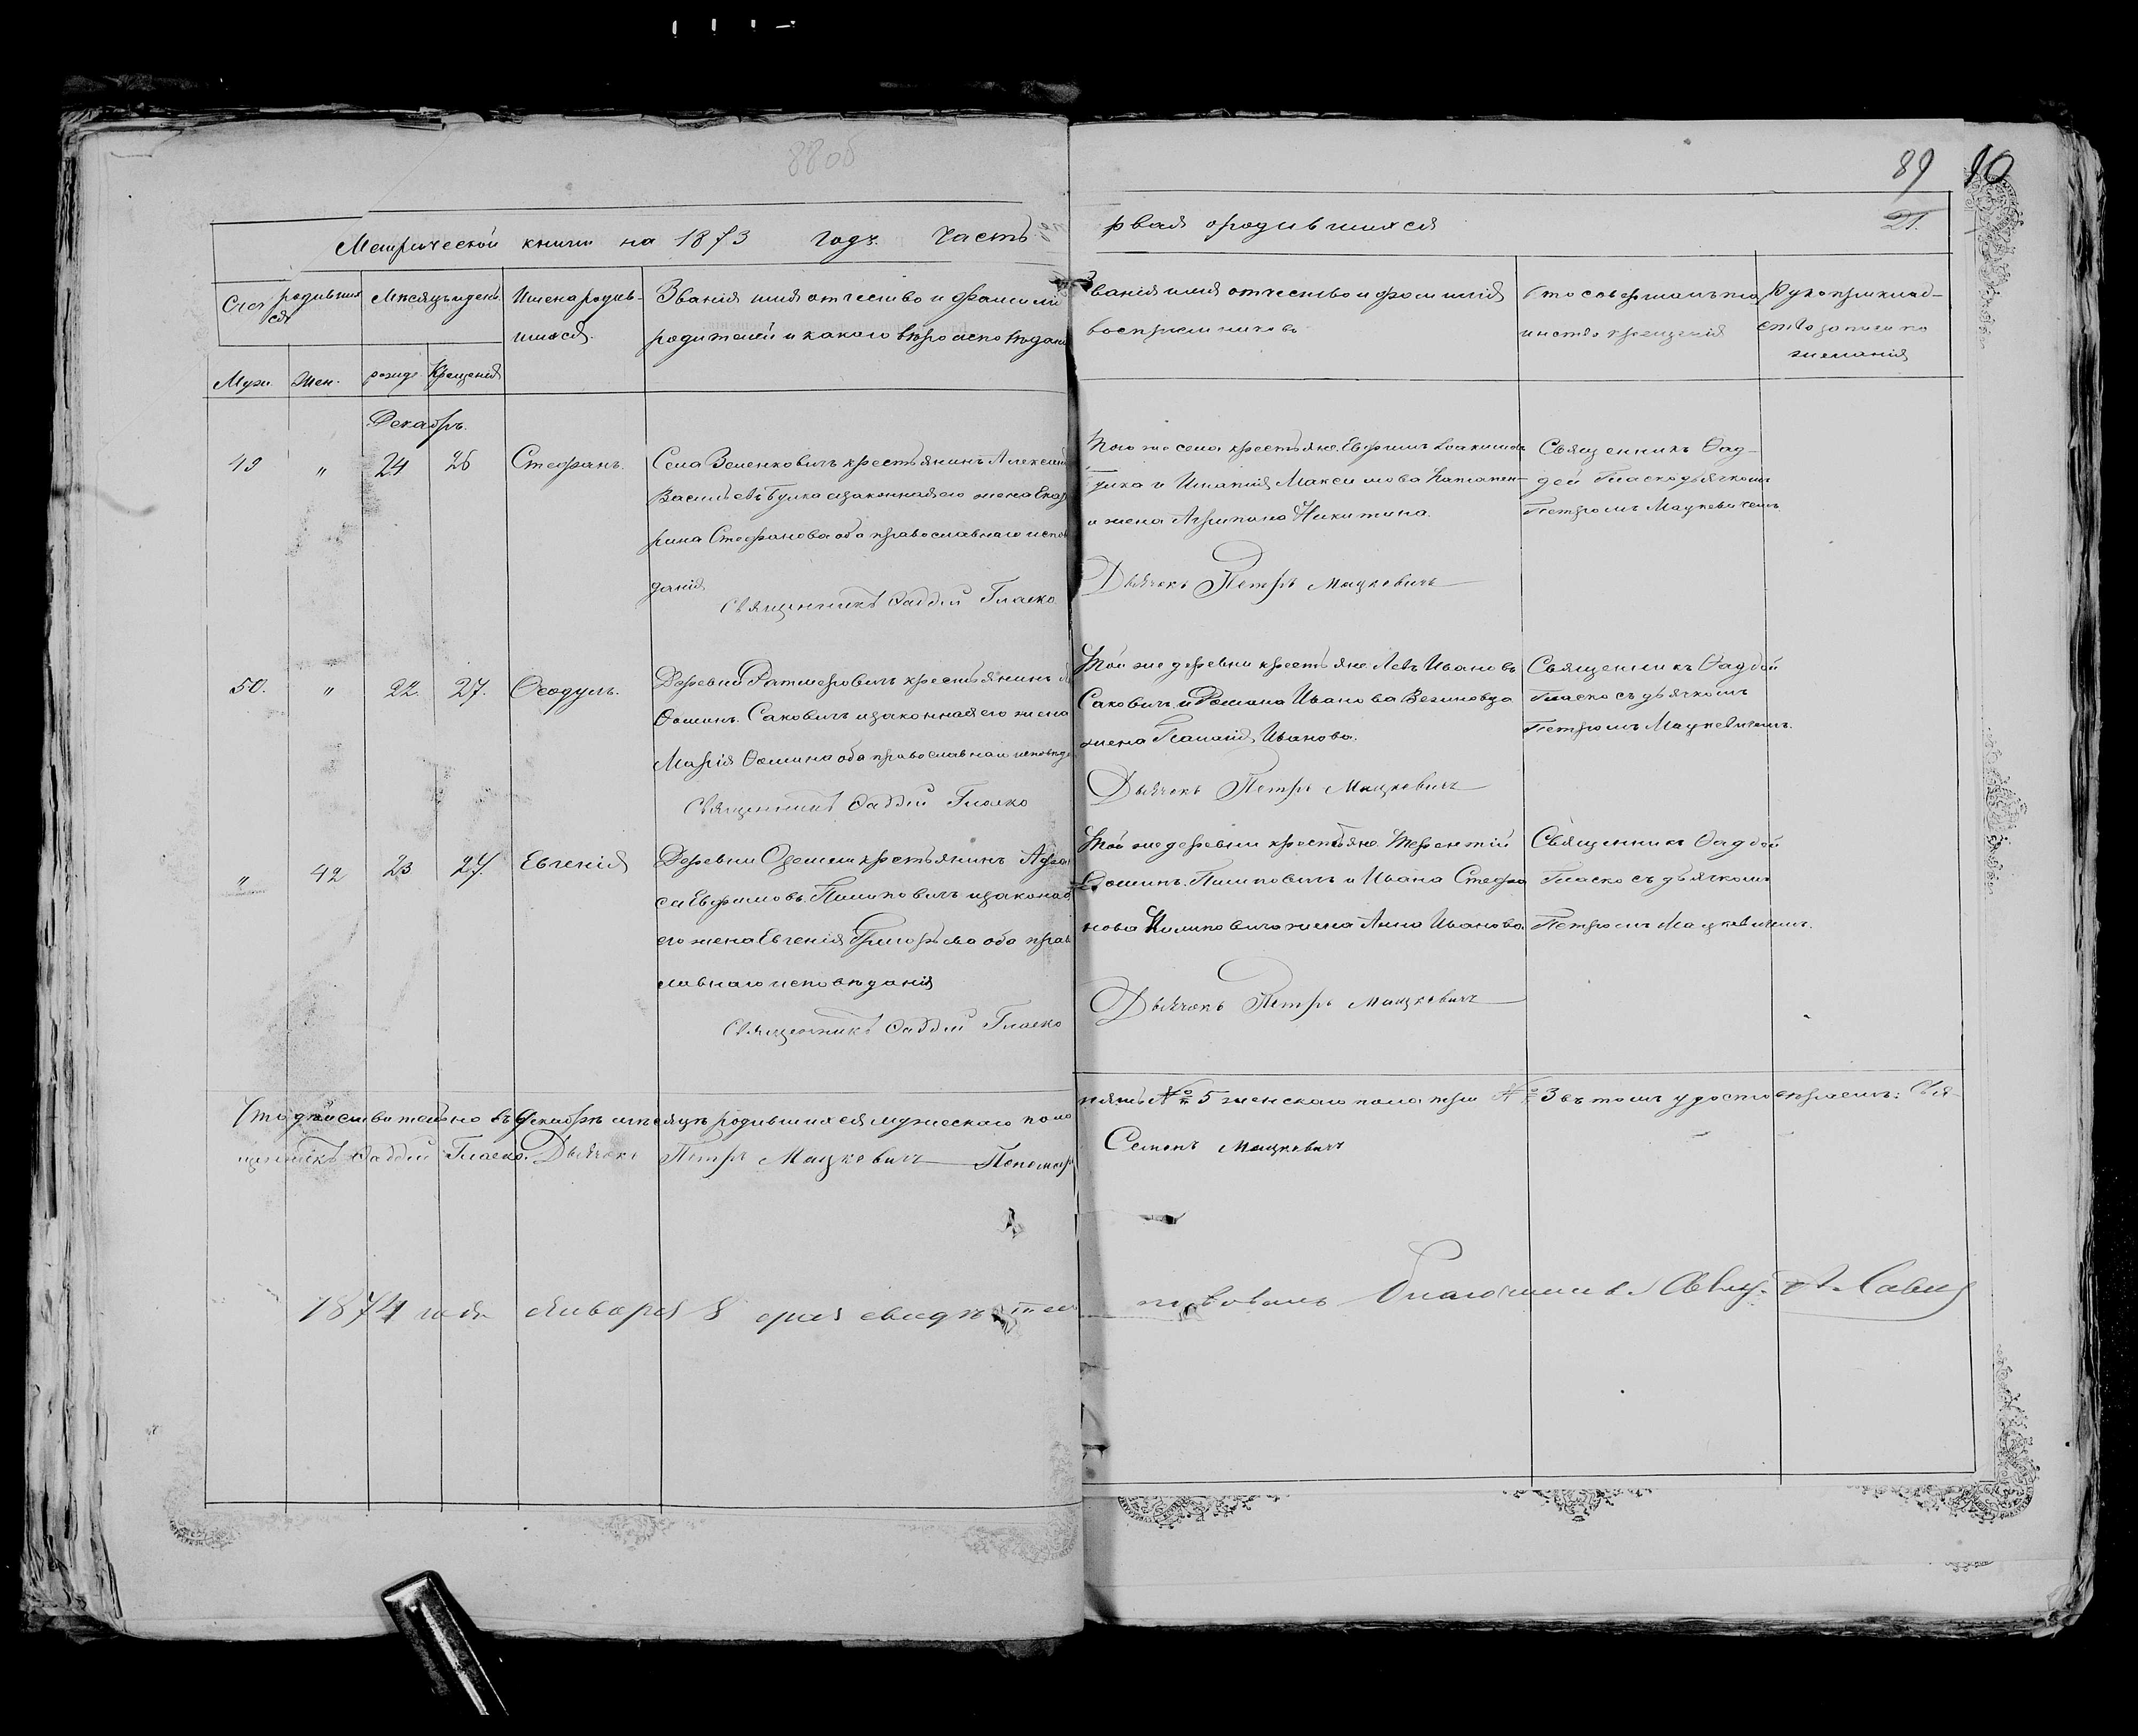 88об
89 90
21.
Метрической книги на 1873 годъ. Часть
рвая о родившихся
Счетъ родивших
ся
Мѣсяцъ и день
Имена родив-
шихся.
Званія имя отчество и фамилі
родителей и какого вѣроисповѣдан
Муж. Жен. рожде Крещенія
Званія имя отчество и фамилія
воспріемниковъ
Кто совершалъ та
инство крещенія
Рукоприклад-
ство записи по
желанія
Декабрь.
49 " 24 26 Стефанъ.
Села Веленковичъ крестьянинъ Алексей
Васильевъ Булка и законная его жена Екат
рина Стефанова оба православнаго испов
данія
Священникъ Фаддей Гласко
Того же села крестьяне Ефримъ Іоакимов
Булка и Игнатія Максимова
и жена Агрипина Никитина.
Дьячекъ Петръ Мацкевичъ
Священникъ Фад-
дей Гласко дьячкомъ
Петромъ Мацкевичемъ
50. " 22 27. Феодулъ.
Деревни Ратмеровичъ крестьянинъ
Фоминъ Саковичъ и законная его жена
Марія Фомина оба православнаго исповѣд
Священникъ Фаддей Гласко
Той же деревни крестьяне Левъ Ивановъ
Саковичъ и Романа Иванова
жена Иванова.
Дьячекъ Петръ Мацкевичъ
Священникъ Фаддей
Гласко съ дьячкомъ
Петромъ Мацкевичемъ.
" 42 23 27. Евгенія
Деревни крестьянинъ Афана
сій Ефимовъ Пилиповичъ и законная
его жена Евгенія Григорьева оба прав
славнаго исповѣданія
Священникъ Фаддей Гласко
Той же деревни крестьяне Терентій
Фоминъ Пилиповичъ и Ивана Стефа
нова Пилиповича жена Анна Иванова.
Дьячекъ Петръ Мацкевичъ
Священникъ Фаддей
Гласко съ дьячкомъ
Петромъ Мацкевичемъ.
Что дѣйствительно въ Декабрѣ мѣсяцѣ родившихся мужескаго пола
пять № 5 женскаго пола три № 3 въ томъ удостовѣряемъ: Свя-
щенникъ Фаддей Гласко. Дьячекъ Петръ Мацкевичъ Пономарь
Семенъ Мацкевичъ
1874 года января 8 дня свидѣтель
ствовалъ Благочинный Свящ.